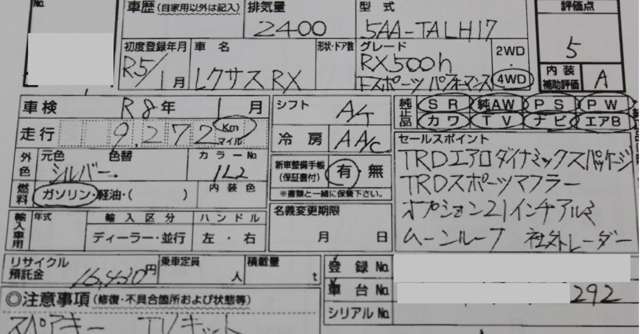 No.
車歴 (自家用以外は記入)
排気量
2400
型式
5AA-TALH17
評価点
5
初度登録年月
R5/1月
車名
レクサスRX
形状・ドア数
グレード
RX500h
Fスポーツ パフォーマンス
2WD
4WD
内装補助評価
A
車検
R8年1月
シフト
A/T
純正品
SR 純AW PS PW
カワ TV ナビ エアB
走行
9,272
Km
マイル
冷房
AAC
セールスポイント
TRDエアロダイナミックスパッケージ
TRDスポーツマフラー
オプション21インチアルミ
ムーンルーフ 社外レーダー
外色
元色 色替
シルバー
カラーNo
1L2
新車整備手帳
(保証書付)
有・無
※書類と一緒に保管下さい。
燃料
ガソリン・軽油・( )
内装色
輸入車用
年式
輸入区分
ハンドル
ディーラー・並行
左・右
名義変更期限
月 日
リサイクル預託金
円
乗車定員
人
積載量
t
登録No.
車台No.
292
シリアルNo.
◎注意事項 (修復・不具合箇所および状態等)
スペアキー TVキット